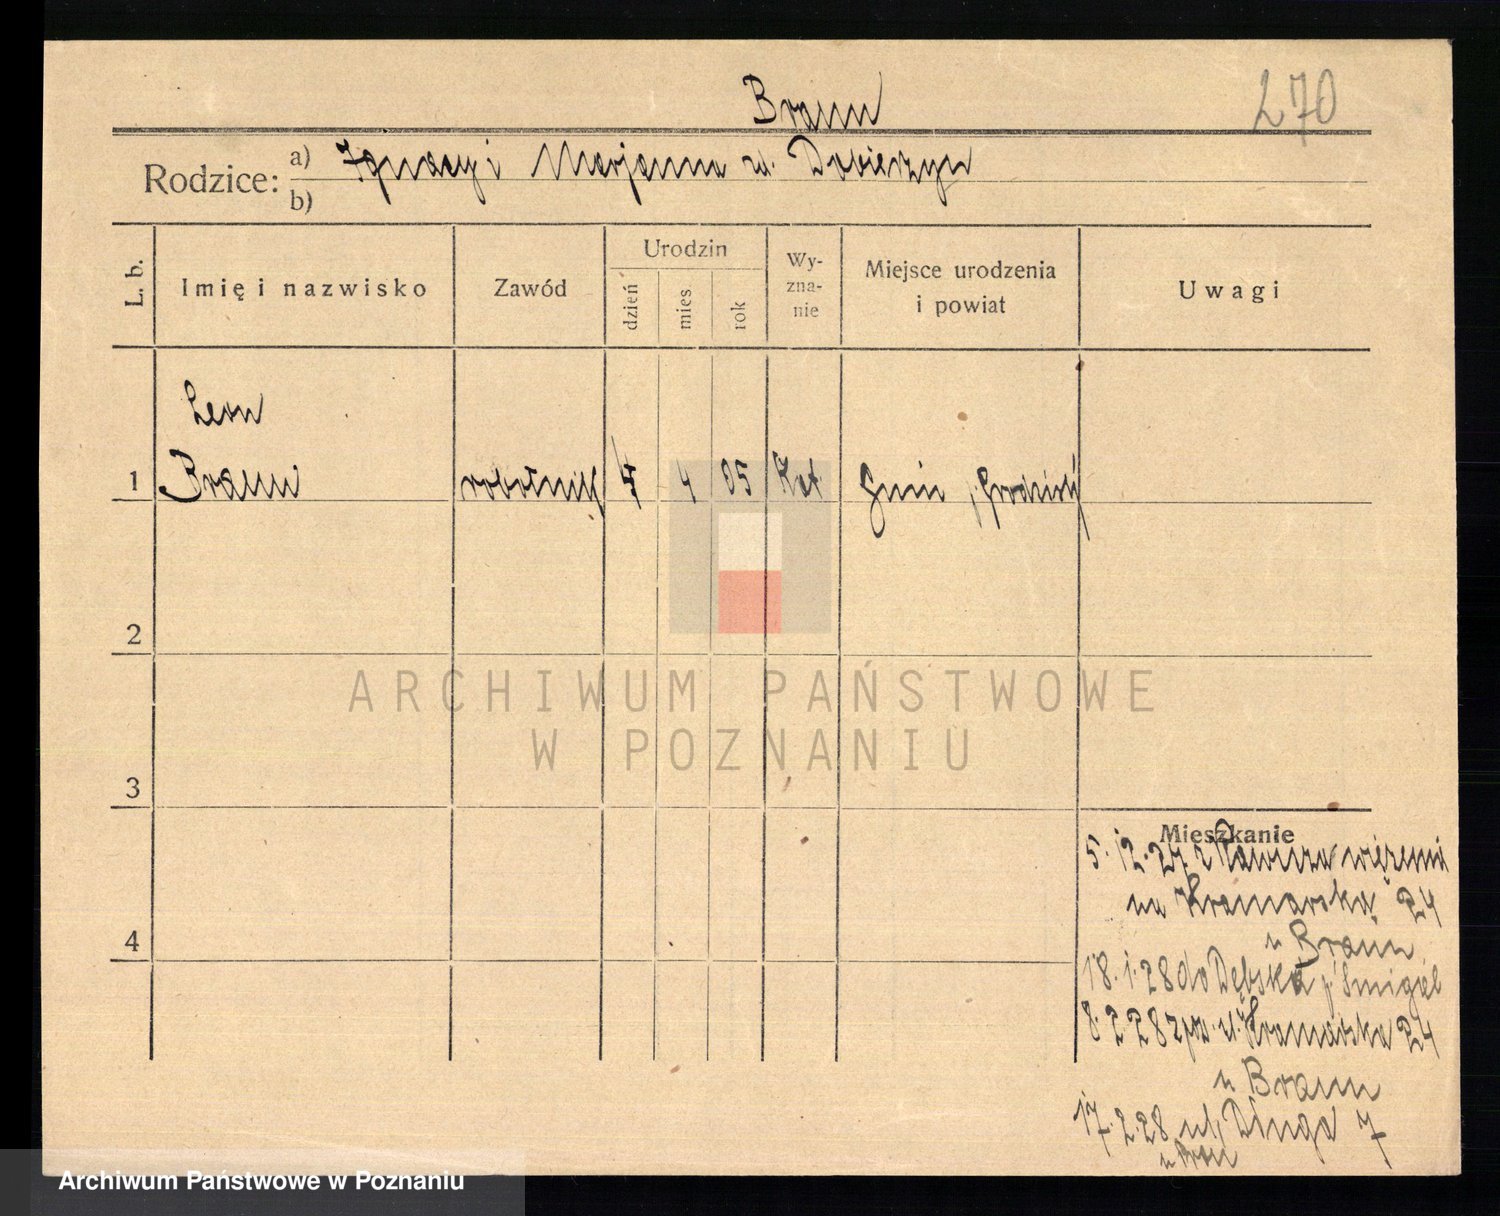 Braun
270
Rodzice: a) Ignacy i Marjanna zd. Dobierzyn
b)
L. b.
Imię i nazwisko
Zawód
Urodzin
dzień
mies
rok
Wy-
zna-
nie
Miejsce urodzenia
i powiat
Uwagi
Leon
1 Braun robotnik 4 4 05 Kat Gnin p. Grodzisk
2
3
4
Mieszkanie
5.12.27. z więzienia
na Kramarska 24
u Braun
18.1.28 do Dębska p. Śmigiel
8.2.28 zpo. ul. Kramarska 24
u Braun
17.2.28 ul. Długa 7
u
ARCHIWUM PAŃSTWOWE
W POZNANIU
Archiwum Państwowe w Poznaniu